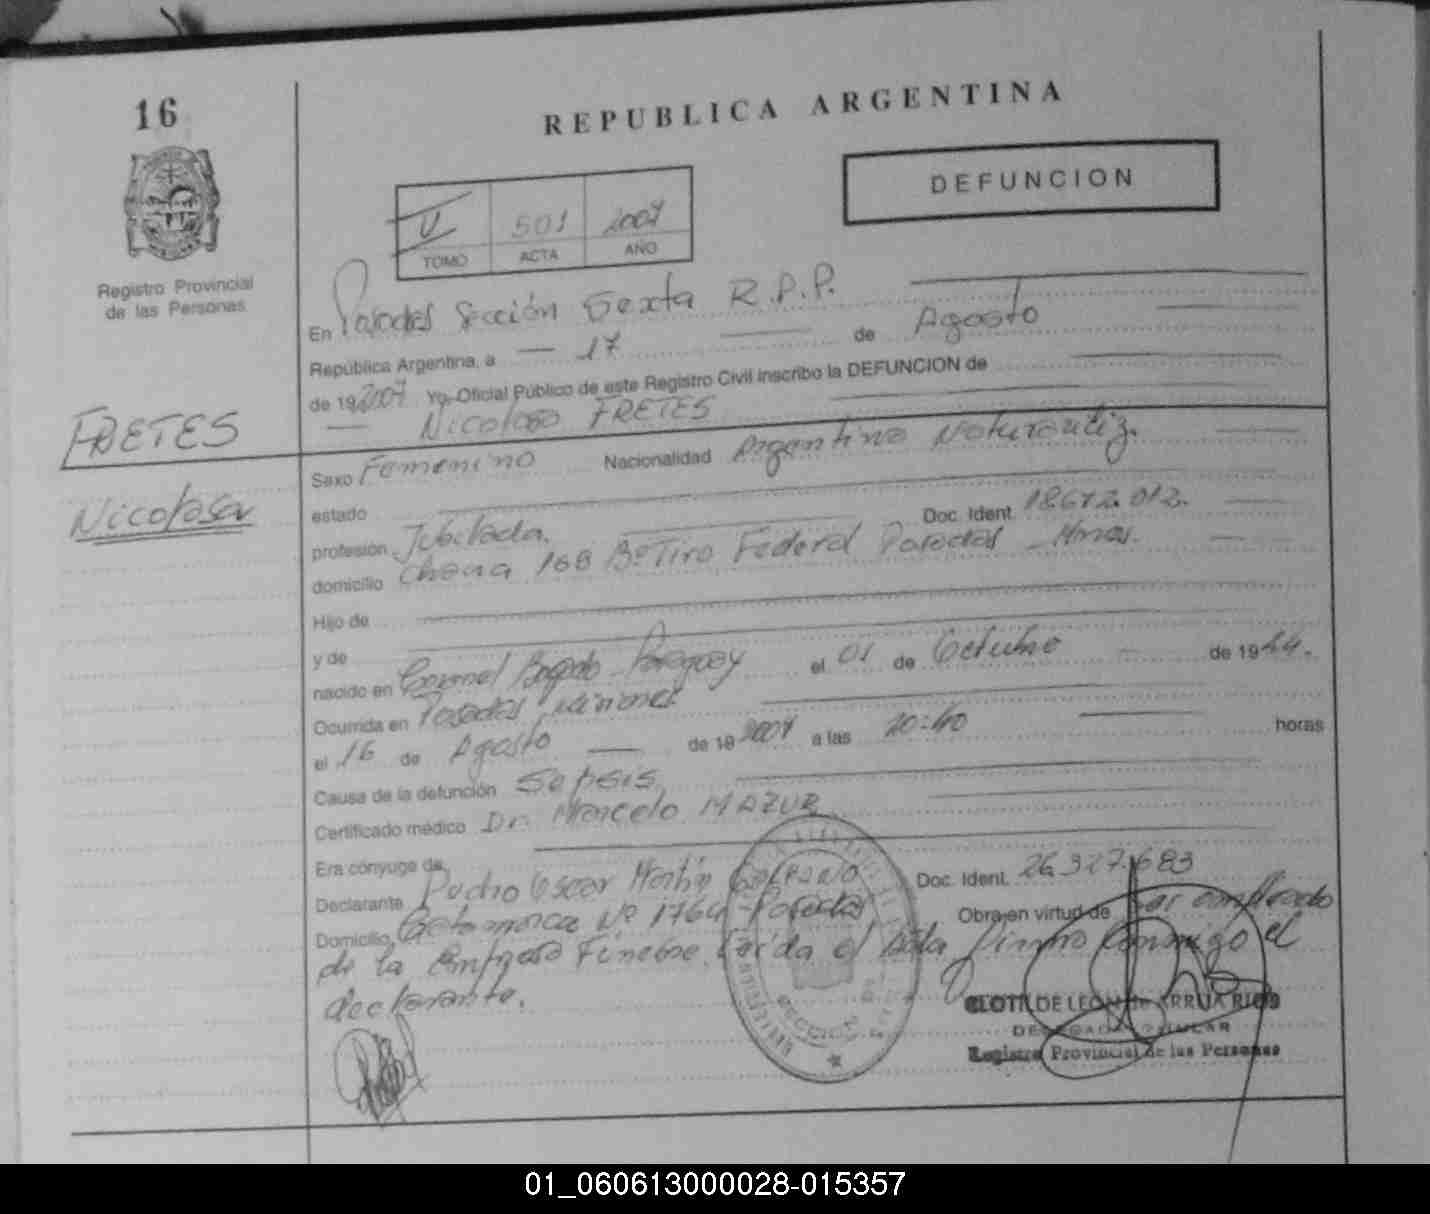 16
REPUBLICA ARGENTINA
DEFUNCION
V 501 2007
TOMO ACTA AÑO
Registro Provincial
de las Personas
En Posadas Sección Sexta R.P.P.
República Argentina, a 17 de Agosto
de 19 2007 Yo, Oficial Público de este Registro Civil inscribo la DEFUNCION de
Nicolasa FRETES
FRETES
Nicolasa
Sexo Femenino Nacionalidad Argentina Naturaliz.
estado
profesión Jubilada. Doc. Ident. 18.672.012.
domicilio 168 Bº Tiro Federal Posadas - Mnes.
Hijo de
y de
nacido en Coronel Bogado - Paraguay el 01 de Octubre de 1944.
Ocurrida en Posadas Misiones
el 16 de Agosto de 19 2007 a las 20:40 horas
Causa de la defunción Sepsis
Certificado médico Dr. Marcelo MAZUR
Era cónyuge de
Declarante Pedro Oscar Martín Doc. Ident. 26.327.683
Domicilio Catamarca Nº 1764 - Posadas Obra en virtud de ser empleado
de la Empresa Fúnebre. Leída el Acta firma conmigo el
declarante.
SECCION
CLOTILDE LEON de ARRUA RIOS
DELEGADA TITULAR
Registro Provincial de las Personas
01_060613000028-015357